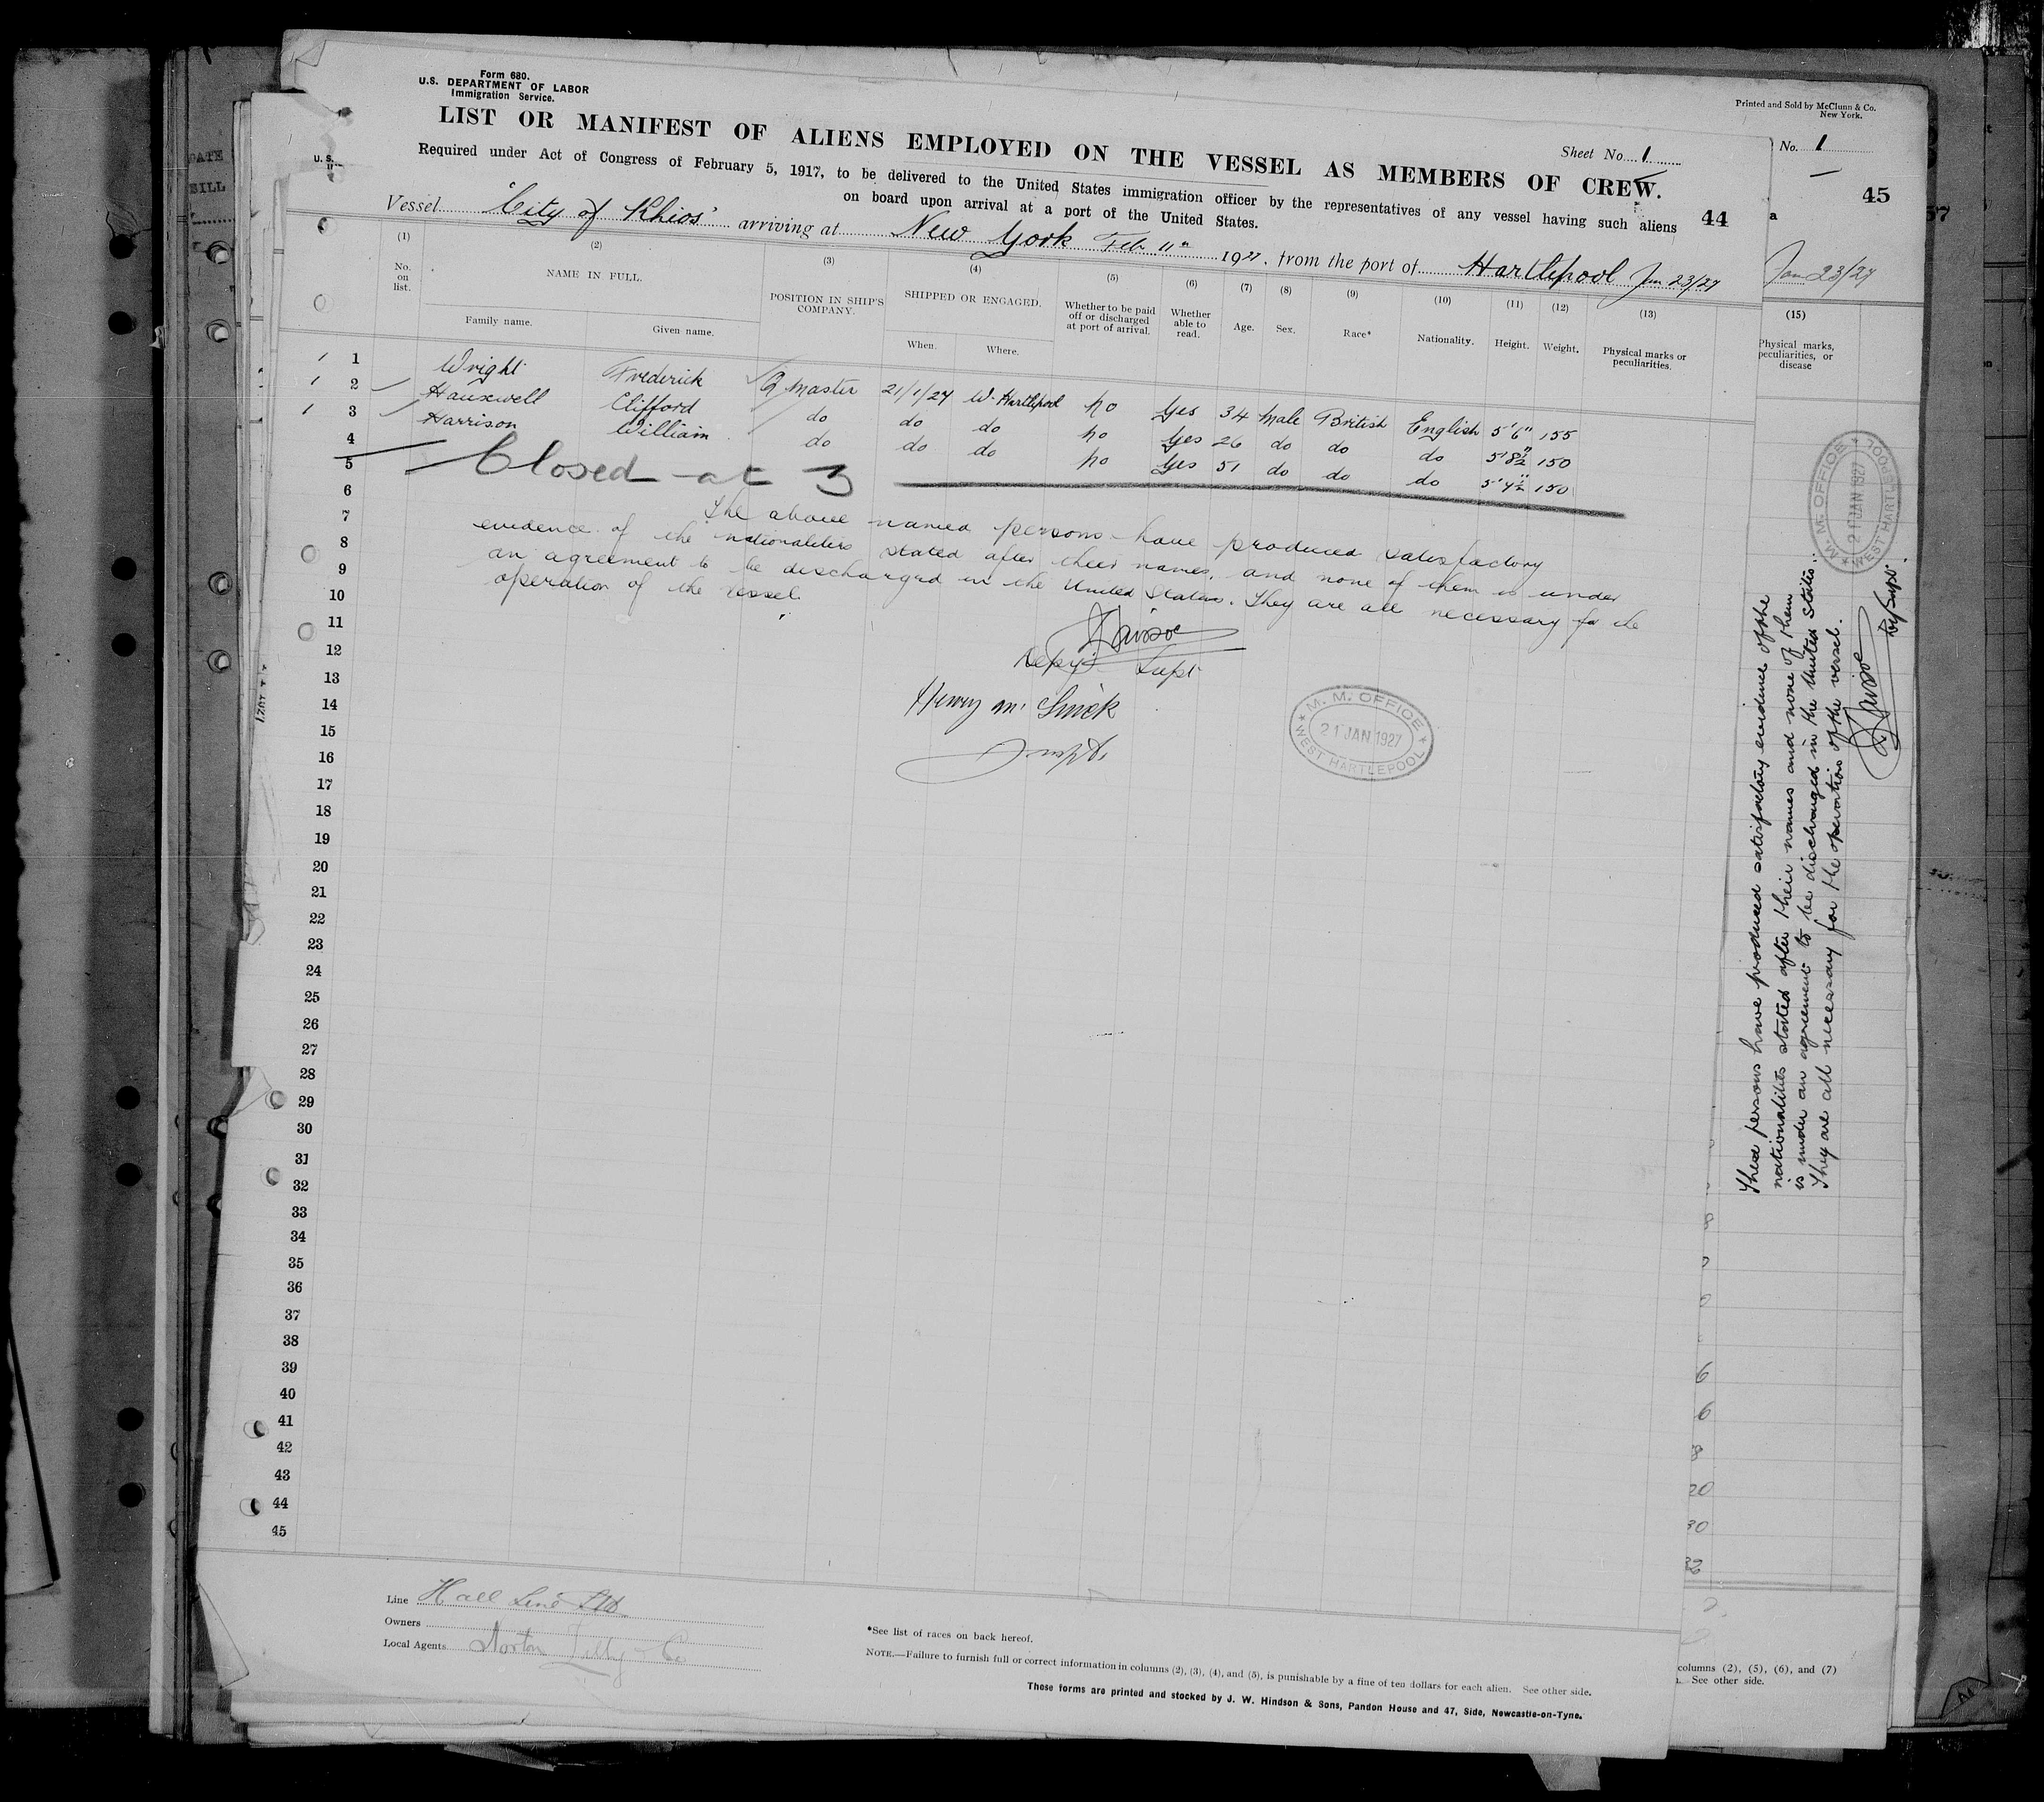 Form 680.
U.S. DEPARTMENT OF LABOR
Immigration Service.
Printed and Sold by McClunn & Co.
New York.
LIST OR MANIFEST OF ALIENS EMPLOYED ON THE VESSEL AS MEMBERS OF CREW.
Sheet No. 1
No. 1
Required under Act of Congress of February 5, 1917, to be delivered to the United States immigration officer by the representatives of any vessel having such aliens
on board upon arrival at a port of the United States.
44
45
Vessel "City of Khios" arriving at New York Feb 11th 1927, from the port of Hartlepool Jan 23/27
Jan 23/27
(1) (2) (3) (4) (5) (6) (7) (8) (9) (10) (11) (12) (13) (15)
No. on list.
NAME IN FULL.
Family name. Given name.
POSITION IN SHIP'S COMPANY.
SHIPPED OR ENGAGED.
When. Where.
Whether to be paid off or discharged at port of arrival.
Whether able to read.
Age. Sex. Race* Nationality. Height. Weight.
Physical marks or peculiarities.
Physical marks, peculiarities, or disease
1 Wright Frederick Q Master 21/1/27 W. Hartlepool no Yes 34 Male British English 5'6" 155
2 Hauxwell Clifford do do do no Yes 26 do do do 5'8½" 150
3 Harrison William do do do no Yes 51 do do do 5'4½" 150
4
5 Closed at 3
6
7 The above named persons have produced satisfactory
8 evidence of the nationalities stated after their names, and none of them is under
9 an agreement to be discharged in the United States. They are all necessary for the
10 operation of the vessel.
11
12 Depy Supt
13
14 Henry M.
15
16 Supt.
17
18
19
20
21
22
23
24
25
26
27
28
29
30
31
32
33
34
35
36
37
38
39
40
41
42
43
44
45
M. M. OFFICE
21 JAN 1927
WEST HARTLEPOOL
M. M. OFFICE
21 JAN 1927
WEST HARTLEPOOL
These persons have produced satisfactory evidence of the
nationalities stated after their names and none of them
is under an agreement to be discharged in the United States.
They are all necessary for the operation of the vessel.
Dy Supt.
Line Hall Line Ltd
Owners
Local Agents Norton Lilly & Co
*See list of races on back hereof.
NOTE.—Failure to furnish full or correct information in columns (2), (3), (4), and (5), is punishable by a fine of ten dollars for each alien. See other side.
These forms are printed and stocked by J. W. Hindson & Sons, Pandon House and 47, Side, Newcastle-on-Tyne.
columns (2), (5), (6), and (7)
See other side.